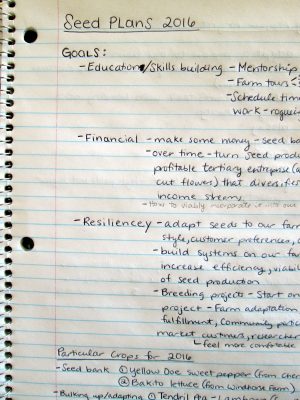 Seed Plans 2016
GOALS:
- Education/Skills building - Mentorship
- Farm tours
- Schedule time
work - roguin
- Financial - make some money - seed ba
- over time - turn seed produ
profitable tertiary entreprise (a
cut flowers) that diversifi
income streams.
- How to viably incorporate it into our
- Resiliencey - adapt seeds to our far
style, customer preferences, c
- build systems on our far
increase efficiency, viabi
of seed production
- Breeding projects - Start on
project - Farm adaptation
fulfillment, community partici
market customers, researcher
feel more comfortable
Particular Crops for 2016
- Seed bank ① Yellow Doe sweet pepper (from cher
② Bakito lettuce (from Windhorse Farm)
- Bulking up/adapting ① Tendril Pea - Lamborn (S